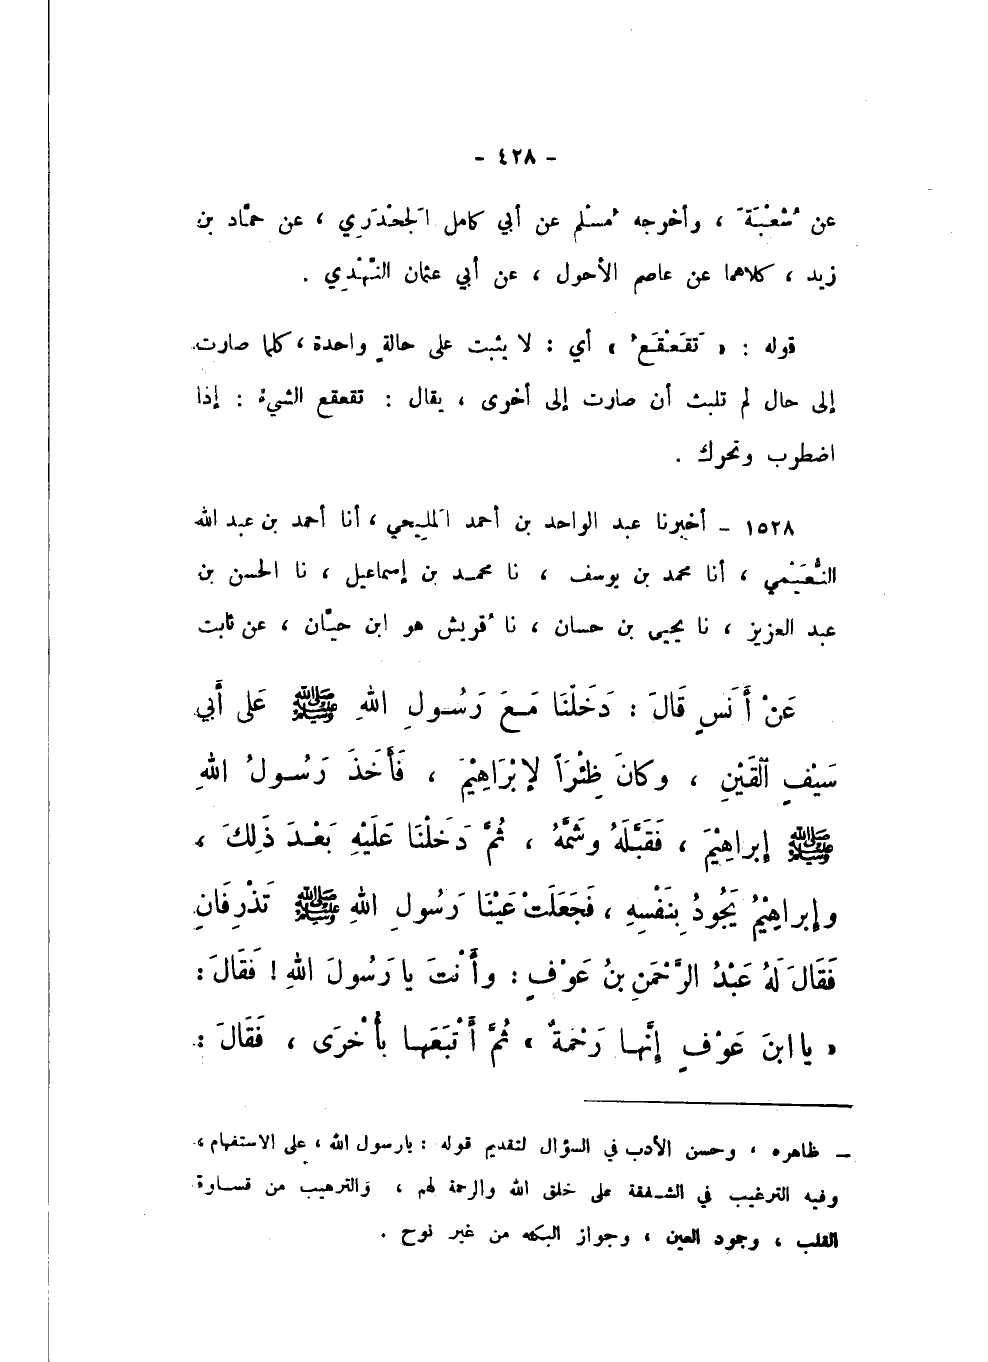 - ٤٢٨ -
عن شُعْبَةَ ، وأخرجه مُسْلم عن أبي كامل الَجحْدَري ، عن حمّاد بن
زيد ، كلاهما عن عاصم الأحول ، عن أبي عثمان النَّهْدِي .
قوله : « تَقَعْقَع ُ » أي : لا يثبت على حالةٍ واحدة ، كلما صارت
إلى حال لم تلبث أن صارت إلى أخرى ، يقال : تقعقع الشيءُ : إذا
اضطرب وتحرك .
١٥٢٨ - أخبرنا عبد الواحد بن أحمد الَمليحي ، أنا أحمد بن عبد الله
النُّعَيْمي ، أنا محمد بن يوسف ، نا محمد بن إسماعيل ، نا الحسن بن
عبد العزيز ، نا يحيى بن حسان ، نا ُقريش هو ابن حيّان ، عن ثابت
عَنْ أَنَسٍ قَالَ : دَخَلْنَا مَعَ رَسُولِ اللهِ ﷺ عَلى أَبي
سَيْفٍ ٱلْقَيْنِ ، وكانَ ظِئْرَاً لإبْرَاهِيْمَ ، فَأَخَذَ رَسُولُ اللهِ
ﷺ إبراهِيْمَ ، فَقَبَّلَهُ وشَمَّهُ ، ثُمَّ دَخَلْنَا عَلَيْهِ بَعْدَ ذَلِكَ ،
وإبراهِيْمُ يَجُودُ بِنَفْسِهِ ، فَجَعَلَتْ عَيْنَا رَسُولِ اللهِ ﷺ تَذْرِفَانِ
فَقَالَ لَهُ عَبْدُ الرَّحْمَنِ بنُ عَوْفٍ : وأَنْتَ يا رَسُولَ اللهِ ! فَقَالَ :
« يا ابنَ عَوْفٍ إنَّها رَحْمَةٌ » ثُمَّ أَتْبَعَها بأُخْرَى ، فَقَالَ :
ــ ظاهره ، وحسن الأدب في السؤال لتقديم قوله : يارسول الله ، على الاستفهام ،
وفيه الترغيب في الشفقة على خلق الله والرحمة لهم ، والترهيب من قساوة
القلب ، وجمود العين ، وجواز البكاء من غير نوح .